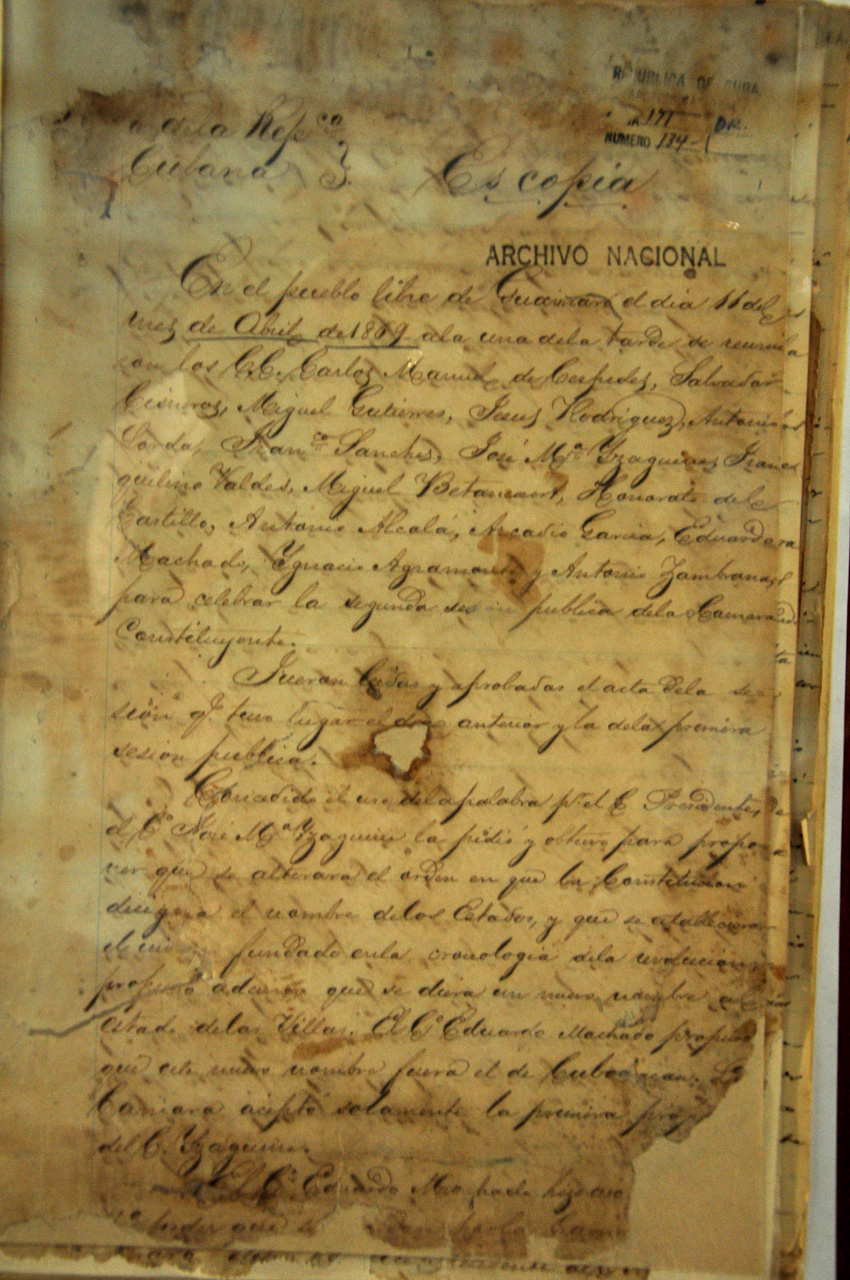 REPUBLICA DE CUBA
NUMERO 134-1
de la Repca
Cubana
Es copia
ARCHIVO NACIONAL
En el pueblo libre de Guaimaro el dia 11 del
mes de Abril de 1869 a la una de la tarde se reunie
con los C.C. Carlos Manuel de Cespedes, Salvador
Cisneros, Miguel Gutierres, Jesus Rodriguez, Antonio
Lorda, Franco Sanches, José Ma Yzaguirre,
Valdes, Miguel Betancourt, Honorato del
Castillo, Antonio Alcalá, Arcadio Garcia, Eduardo
Machado, Ygnacio Agramonte y Antonio Zambrana,
para celebrar la segunda publica de la Camara
Constituyente.
Fueron leidas y aprobadas el acta de la se
sion q. tuvo lugar el anterior y la de la primera
sesion publica.
Concedido el uso de la palabra pr el C. Presidente,
el Co José Ma Yzaguirre la pidió y obtuvo para propo
ner que se alterara el orden en que la Constitucion
designa el nombre de los Estados, y que se estableciera
el fundado en la cronologia de la revolucion
propuso ademas que se diera un nuevo nombre
estado de las Villas. El Co Eduardo Machado propuso
que este nuevo nombre fuera el de Cubanacan. La
Camara aceptó solamente la primera
del C. Yzaguirre.
El Co Eduardo Machado hizo
que